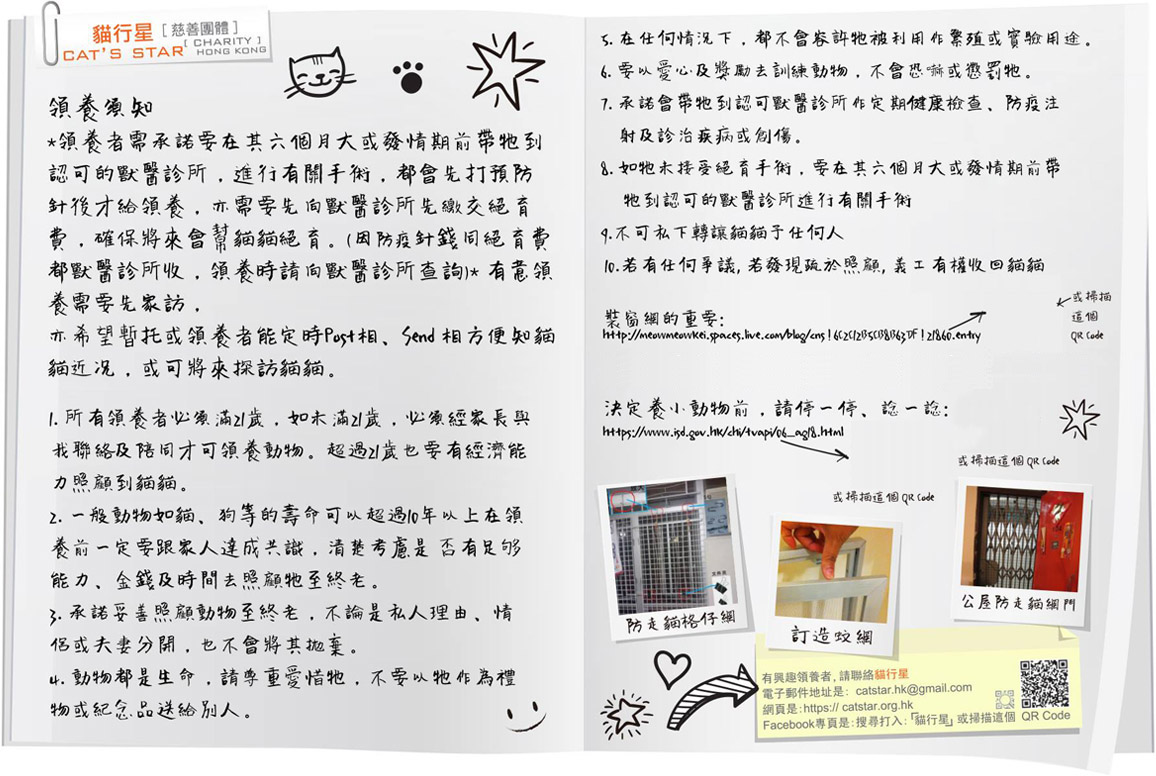 貓行星 [ 慈善團體 ]
CAT'S STAR [ CHARITY ] HONG KONG
領養須知
*領養者需承諾要在其六個月大或發情期前帶牠到
認可的獸醫診所，進行有關手術，都會先打預防
針後才給領養，亦需要先向獸醫診所先繳交絕育
費，確保將來會幫貓貓絕育。(因防疫針錢同絕育費
都獸醫診所收，領養時請向獸醫診所查詢)* 有意領
養需要先家訪，
亦希望暫托或領養者能定時Post相、Send相方便知貓
貓近況，或可將來探訪貓貓。
1. 所有領養者必須滿21歲，如未滿21歲，必須經家長與
我聯絡及陪同才可領養動物。超過21歲也要有經濟能
力照顧到貓貓。
2. 一般動物如貓、狗等的壽命可以超過10年以上在領
養前一定要跟家人達成共識，清楚考慮是否有足够
能力、金錢及時間去照顧牠至終老。
3. 承諾妥善照顧動物至終老，不論是私人理由、情
侶或夫妻分開，也不會將其拋棄。
4. 動物都是生命，請尊重愛惜牠，不要以牠作為禮
物或紀念品送給別人。
5. 在任何情況下，都不會容許牠被利用作繁殖或實驗用途。
6. 要以愛心及獎勵去訓練動物，不會恐嚇或懲罰牠。
7. 承諾會帶牠到認可獸醫診所作定期健康檢查、防疫注
射及診治疾病或創傷。
8. 如牠未接受絕育手術，要在其六個月大或發情期前帶
牠到認可的獸醫診所進行有關手術
9. 不可私下轉讓貓貓予任何人
10. 若有任何爭議, 若發現疏於照顧, 義工有權收回貓貓
裝窗網的重要:
http://meowmeowkei.spaces.live.com/blog/cns!6C2C12B5CB8B637F!21860.entry
或掃描
這個
QR Code
決定養小動物前，請停一停、諗一諗:
https://www.isd.gov.hk/chi/tvapi/06_ag18.html
或掃描這個 QR Code
或掃描這個 QR Code
防走貓格仔網
訂造蚊網
公屋防走貓網門
有興趣領養者, 請聯絡貓行星
電子郵件地址是： catstar.hk@gmail.com
網頁是:https:// catstar.org.hk
Facebook專頁是:搜尋打入:「貓行星」或掃描這個 QR Code